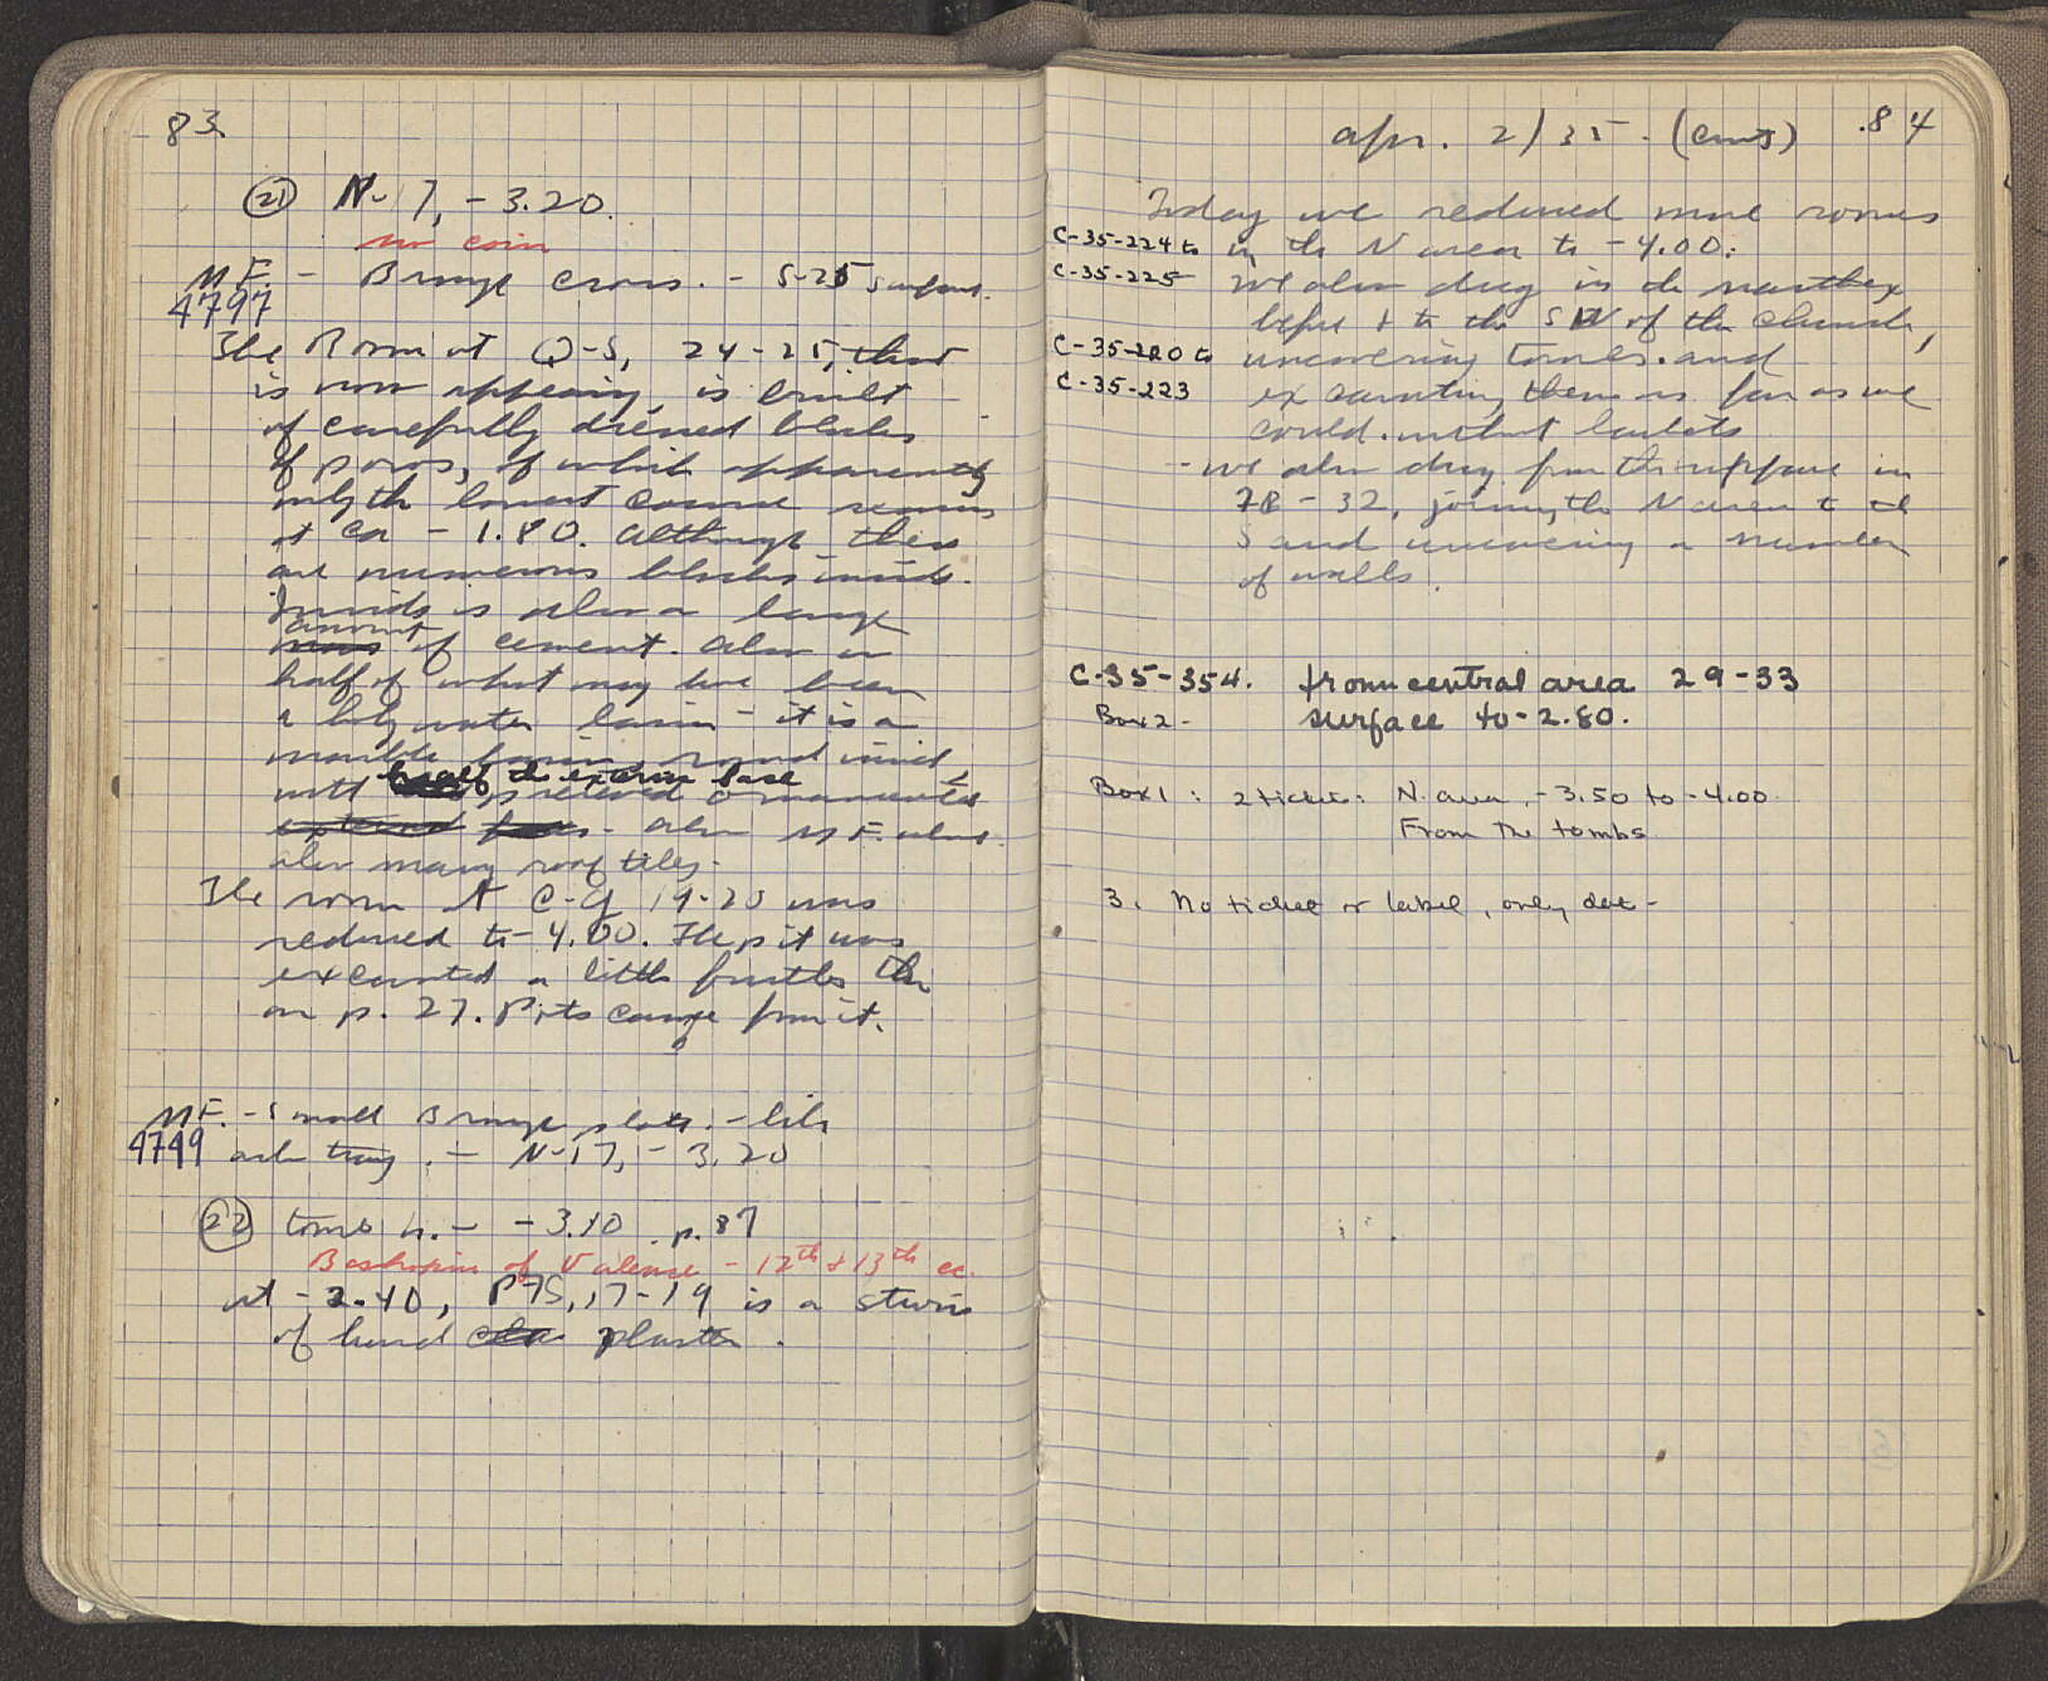 83
(21) N-17, -3.20.
no coin
MF. - Bronze Cross. - S-25 surface.
4797
The Room at Q-S, 24-25, that
is now appearing, is built
of carefully dressed blocks
of poros, of which apparently
only the lowest course remains
at ca -1.80. Although there
are numerous blocks inside.
Inside is also a large
amount
mass of cement. Also a
half of what may have been
a holy water basin - it is a
marble basin, round inside,
half the exterior base
with preserved ornamented
external face. Also MF. above.
also many roof tiles.
The room at C-G, 19-20 was
reduced to -4.00. The pit was
excavated a little further than
on p. 27. Pots came from it.
MF. - Small Bronze plate. - like
4749 ash tray. - N-17, -3.20
(22) tomb h. - -3.10. p. 87
Bishopric of Valence - 12th + 13th cc.
at -2.40, P-S, 17-19 is a
of hard plaster.
Apr. 2/35 - (cont) 84
Today we reduced more rooms
C-35-224 to in the N area to -4.00.
C-35-225 We also dug in the narthex
before & to the SW of the church,
C-35-220 to uncovering tombs. and
C-35-223 excavating them as far as we
could. without baskets
- we also dug from the surface in
28-32, joining the N area to the
S and uncovering a number
of walls.
C-35-354. from central area 29-33
Box 2 - surface to -2.80.
Box 1: 2 tickets: N. area, -3.50 to -4.00.
From the tombs
3. No ticket or label, only date -